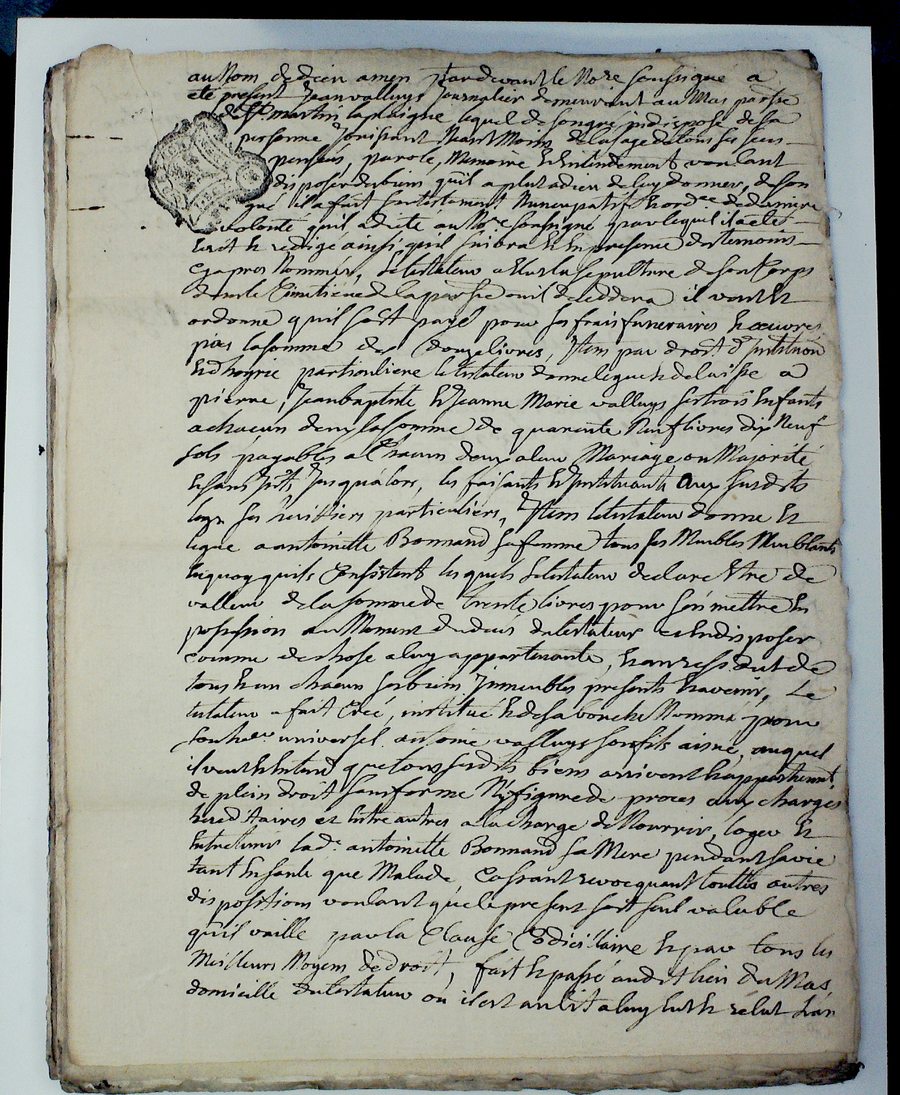 au Nom de dieu amen pardevant le No.re soussigné a
été present Jean valluys Journalier demeurant au Mas parsse
de St martin la plaigne lequel de son gré indisposé de sa
personne Jouissant Neant Moins de la sage de tous ses sens
penseés, parole, Memoire & Entendement voulant
disposer des biens qu'il a plut a dieu de luy donner, de son
gré il a fait son testament Nuncupatif & ord.re de derniere
volonté qu'il a dicté au No.re soussigné par lequel il a eté
Ecrit & redigé ainsi qu'il suivra & En presence des temoins
cy apres Nommés, le testateur a Elu la sepulture de son Corps
dans le Cimetiere de la parsse il veut &
ordonne qu'il soit payé pour ses frais funeraires & œuvres
pies la somme de Douze livres, Item par droit d'Institution
& d'hoyrie particuliere le testateur donne legue & delaisse a
pierre, Jean baptiste & Jeanne Marie valluys ses trois Enfants
a chacun deux la somme de quarante Neuf livres dix Neuf
sols payables a Chacun deux a leur Mariage ou Majorité
& sans Jnts Jusqu'alors, les faisants & Jnstituants aux susdits
legs ses heritiers particuliers, Item le testateur donne &
legue a antoinette Bonnand sa femme tous ses Meubles Meublants
En quoy quils Consistent lesquels le testateur declare Etre de
valleur de la somme de trente livres pour s'en mettre En
possession au Moment du deces du testateur & En disposer
comme de chose a luy appartenante, & au residut de
tous & un chacun ses biens Jmmeubles presents & avenir, Le
testateur a fait Créé, institué & de sa bouche Nommé pour
son her. universel antoine valluys son fils ainé, auquel
il veut & Entend que tous sesdits biens arrivent & appartiennent
de plein droit sans forme Ny figure de proces aux charges
hereditaires et Entre autres a la charge de Nourrir, loger &
Entretenir lad.e antoinette Bonnand sa Mere pendant sa vie
tant En santé que Malade Cassant revocquant touttes autres
dispositions voulant que le present soit seul valuble
qu'il vaille par la Clause Codicillaire & par tous les
Meilleurs Moyens de droit, fait & passé audit lieu du Mas
domicille du testateur ou il est au lit a luy lut & relut L'an